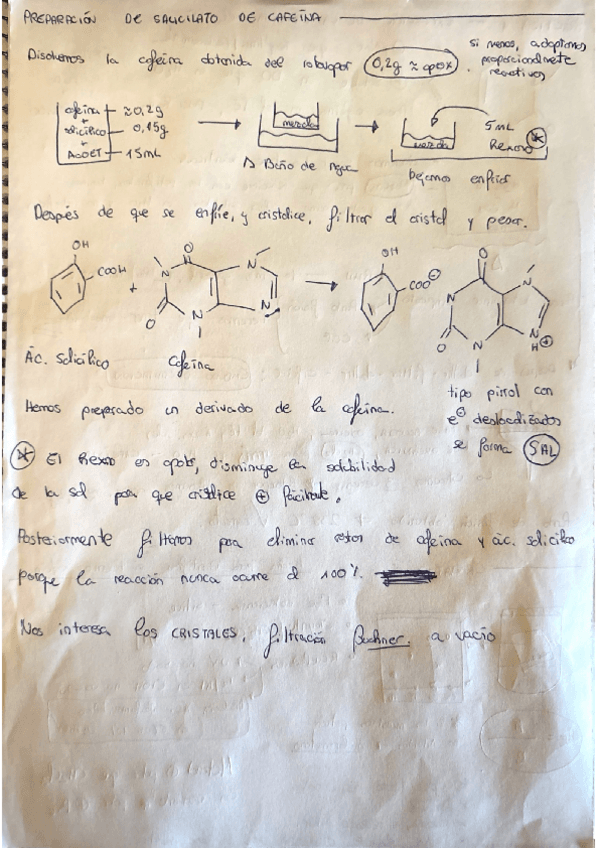 PREPARACIÓN DE SALICILATO DE CAFEÍNA
si menos, adaptamos
Disolvemos la cafeína obtenida del rotavapor 0,2g ≈ aprox. proporcionalmente
reactivos
cafeína ≈ 0,2g
+
salicílico 0,15g
+
AcOET 15mL
mezcla
mezcla
5mL
Hexano *
Δ Baño de agua
Dejamos enfriar
Despés de que se enfríe, y cristalice, filtrar el cristal y pesar.
OH
COOH
+
O
N
N
O
N
N
OH
COO⊖
O
N
N
O
N
N
H ⊕
Ác. Salicílico
Cafeína
tipo pirrol con
e⊖ deslocalizados
se forma SAL
Hemos preparado un derivado de la cafeína.
* El Hexano es apolar, disminuye la solubilidad
de la sal para que cristalice ⊕ fácilmente.
Posteriormente filtramos para eliminar restos de cafeína y ác. salicílico
porque la reacción nunca ocurre al 100%.
Nos interesa los CRISTALES, filtración Buchner a vacío